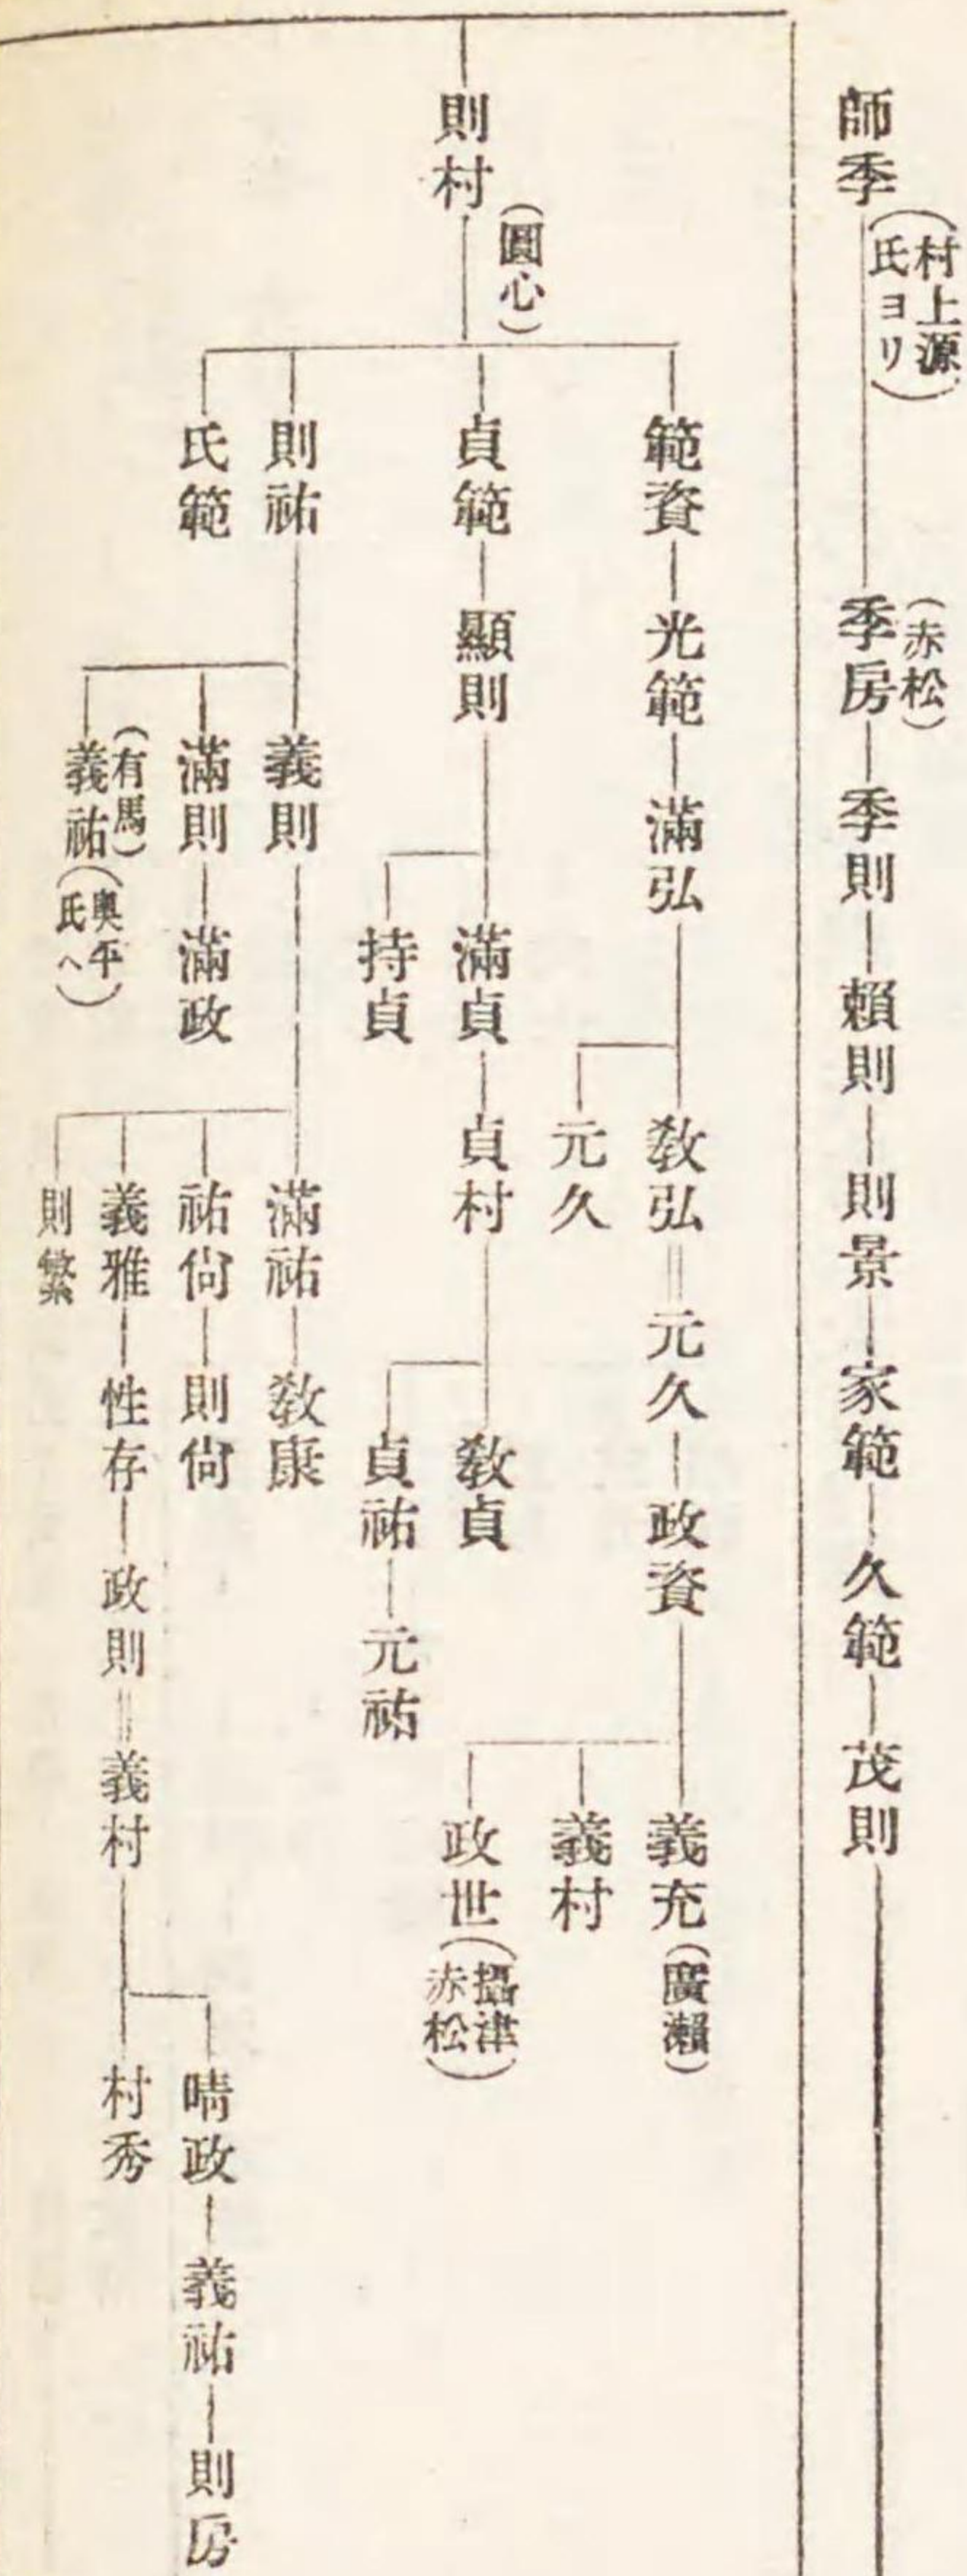 師季(村上源氏ヨリ)
季房(赤松)
季則
頼則
則景
家範
久範
茂則
則村(圓心)
範資
光範
滿弘
敎弘
元久
政資
義充(廣瀬)
義村
政世(攝津赤松)
元久
貞範
顯則
滿貞
貞村
敎貞
貞祐
元祐
持貞
則祐
義則
滿祐
敎康
祐尙
則尙
義雅
性存
政則
義村
晴政
義祐
則房
村秀
則繁
滿則
滿政
(有馬)
義祐(奥平氏ヘ)
氏範